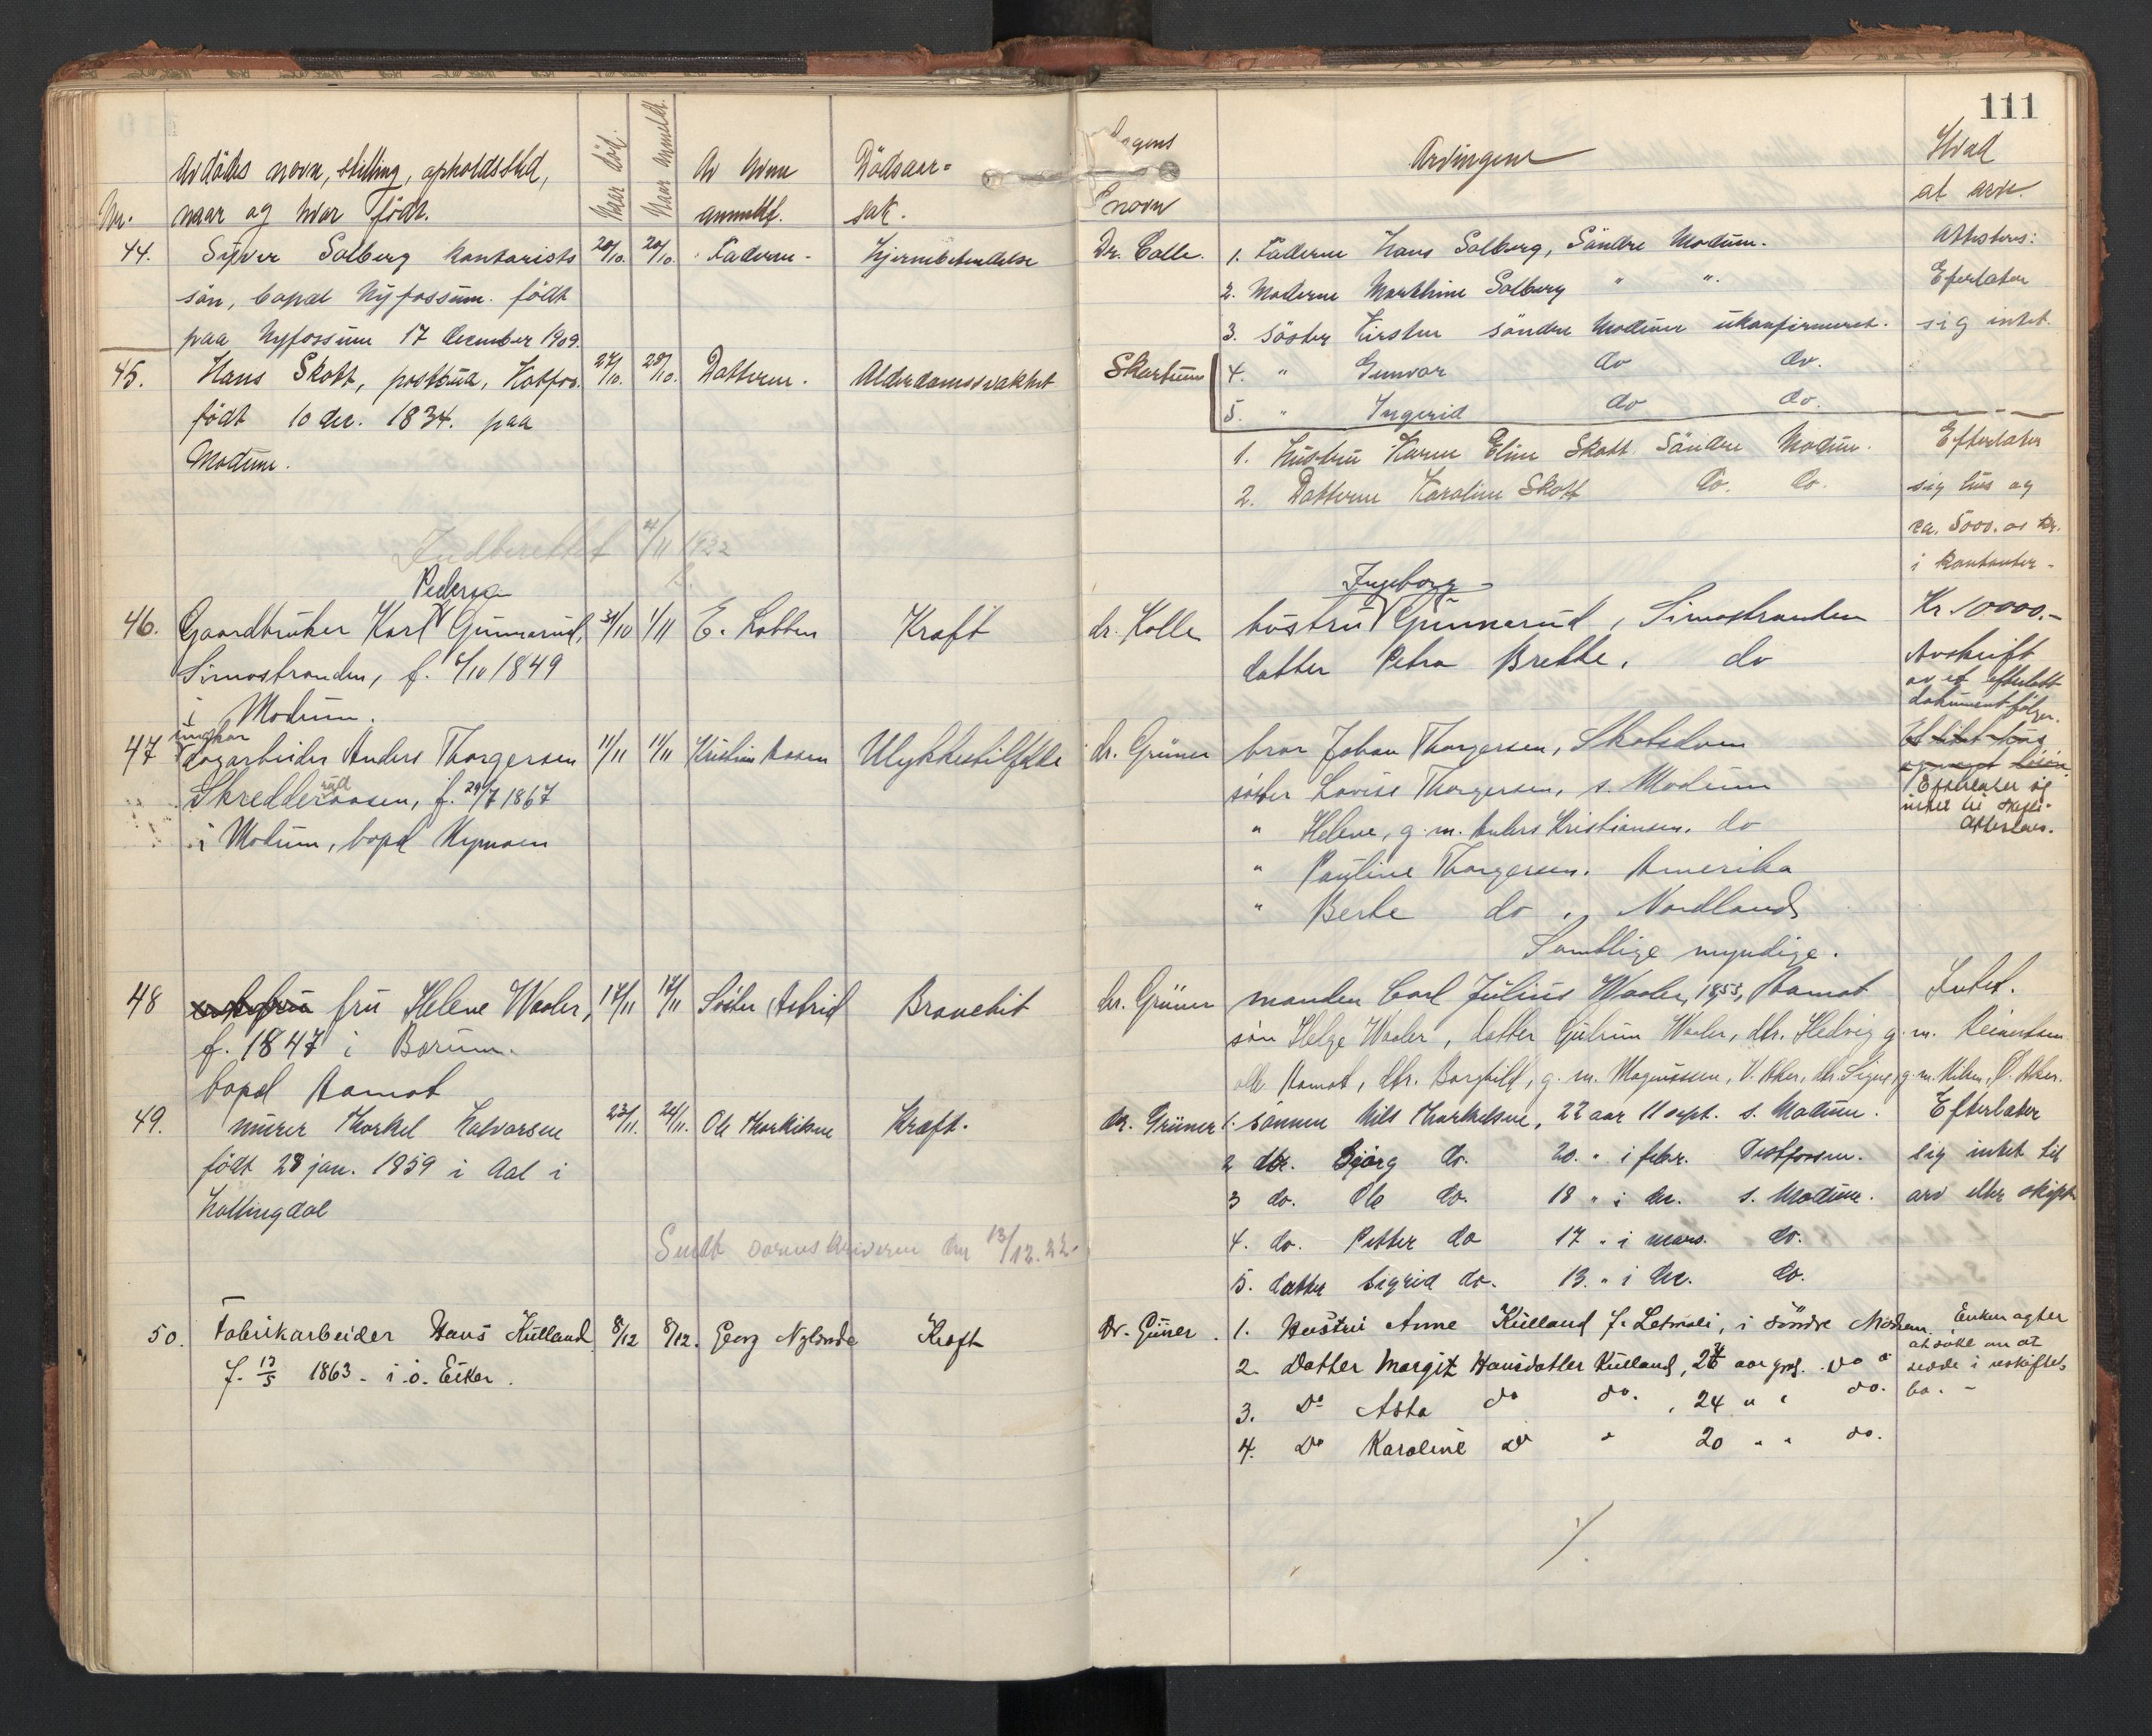 111
Nr.
Avdødes navn, stilling, opholdssted,
naar og hvor født.
Naar død.
Naar anmeldt.
Av hvem
anmeldt.
Dødsaar-
sak.
navn
Arvingene
Hvad
at arve.
44.
Syver Solberg kontorists
søn, bopæl Nyfossum. født
paa Nyfossum 17 december 1909.
20/10.
20/10.
Faderen -
Hjernebetendelse
Dr. Colle.
1. Faderen Hans Solberg, Søndre Modum.
2. Moderen Marthine Solberg " "
3. søster Kirsten søndre Modum ukonfirmeret.
4. " Gunvor do do.
5. " Ingerid do do.
Attesteres:
Efterlater
sig intet.
45.
Hans Skott, Kotfos.
født 10 dec. 1834. paa
Modum.
27/10.
28/10.
Datteren.
Alderdomssvakhet
Skartum
1. Hustru Karen Eline Skott Søndre Modum.
2. Datteren Karoline Skott do. do.
Efterlater
sig hus og
ca. 5000.00 kr.
i kontanter -
Indberettet 4/11 1922
46.
Pedersen
Gaardbruker Karl Gunnerud,
Simostranden, f. 6/10 1849
i Modum.
31/10
1/11
E. Lobben
Kræft
dr. Kolle
Ingeborg
hustru Gunnerud, Simostranden
datter Petra Brekke, do
Kr. 10000.-
Avskrift
av et efterlatt
dokument følger.
47
ungkar
dagarbeider Anders Thorgersen
Skredderaasen, f. 29/7 1867
rud
i Modum, bopæl Nymoen
11/11
11/11
Kristian Aasen
Ulykkestilfelde
dr. Grüner
bror Johan Thorgersen, Skotsdoen
søster Lovise Thorgersen, s. Modum
" Helene, g. m. Anders Kristiansen. do
" Pauline Thorgersen. Amerika
" Berte do, Nordland
Samtlige myndige.
Et litet hus
Efterlater sig
intet til skifte.
Attesteres.
48
fru Helene Waaler,
f. 1847 i Bærum.
bopæl Aamot
17/11
17/11
Søster Astrid
Bronchit
dr. Grüner
manden Carl Julius Waaler, 1853, Aamot
søn Helge Waaler, datter Gudrun Waaler, dtr. Hedvig g. m. Reinertsen
alle Aamot, dtr. Borghild, g. m. Magnussen, V. Aker, dtr. Signe, g. m. Aker.
Intet.
49.
murer Thorkel Halvorsen
født 28 jan. 1859 i Aal i
Hallingdal
23/11.
24/11.
Ole Thorkelsen
Kræft.
dr. Grüner
1. sønnen Nils Thorkelsen, 22 aar 11 sept. s. Modum.
2 dtr. Bjørg do. 20. " i febr. Vestfossen.
3 do. Ole do. 18 " i dec. s. Modum.
4. do. Petter do 17 " i mars. do.
5. datter Sigrid do. 13. " i dec. do.
Efterlater
sig intet til
arv eller skifte
Sendt sorenskriveren den 13/12.22.
50.
Fabrikarbeider Hans Kulland
f. 13/5 1863. i ø. Eiker.
8/12
8/12.
Georg Nylende
Kræft
Dr. Güner.
1. Hustru Anne Kulland f. Letmoli, i søndre Modum.
2. Datter Margit Hansdatter Kulland, 26 aar gml. do
3. Do Asta do do., 24 " " do.
4. Do Karoline do " 20 " " do.
Enken agter
at søke om at
sidde i uskiftet
bo. -